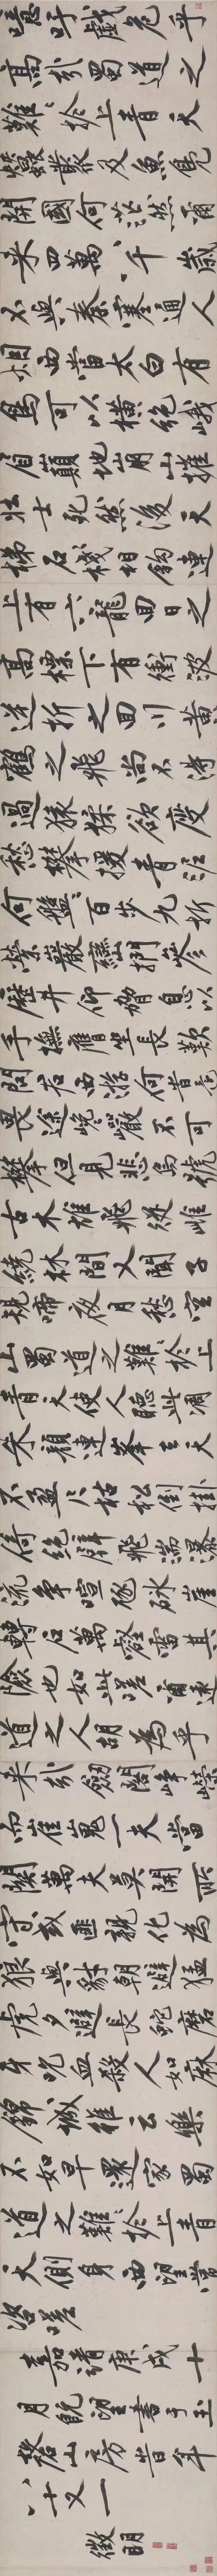 噫吁戲危乎
高哉蜀道之
難〻於上青天
蠶叢及魚鳧
開國何茫然爾
來四萬八千歲
不與秦塞通人
烟西當太白有
鳥可以橫絕峨
眉巔地崩山摧
壯士死然後天
梯石棧相鉤連
上有六龍回日之
高標下有衝波
逆折之回川黃
鶴之飛尚不得
過猿猱欲度
愁攀援青泥
何盤〻百步九折
縈巖巒捫參
歷井仰脅息以
手撫膺坐長歎
問君西游何當還
畏途巉巖不可
攀但見悲鳥號
古木雄飛從雌
繞林間又聞子
規啼夜月愁空
山蜀道之難〻於上
青天使人聽此凋
朱顏連峯去天
不盈尺枯松倒掛
倚絕壁飛湍瀑
流爭喧豗砯崖
轉石萬壑雷其
險也如此嗟爾遠
道之人胡為乎
來哉劒閣崢嶸
而崔嵬一夫當
關萬夫莫開所
守或匪親化為
狼與豺朝避猛
虎夕避長蛇磨
牙吮血殺人如麻
錦城雖云樂
不如早還家蜀
道之難〻於上青
天側身西望常
咨嗟
嘉靖庚戌十
月既望書于玉
磬山房時年
八十又一
徵明